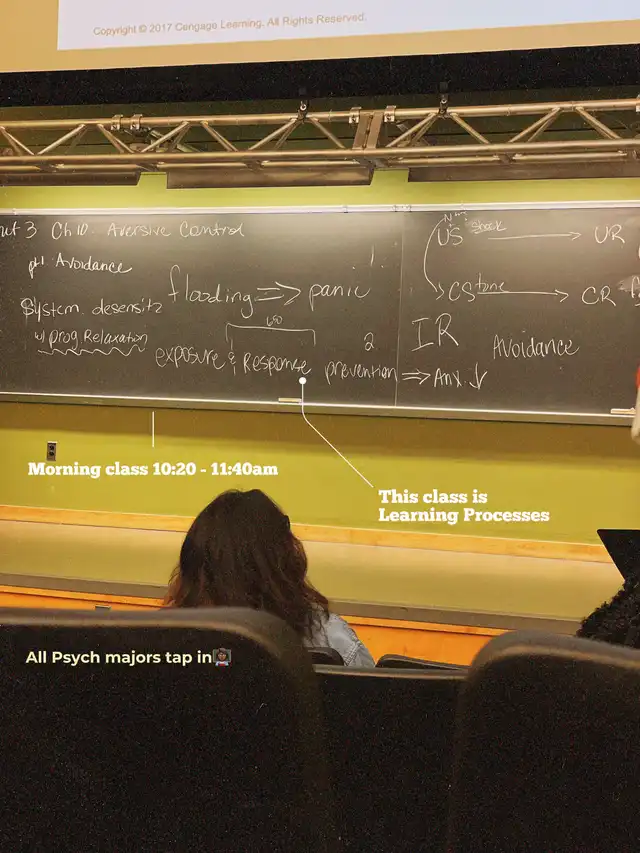 Copyright © 2017 Cengage Learning. All Rights Reserved.
3 Ch 10. Aversive Control
pt1. Avoidance
System. desensitz
w/ prog Relaxation
flooding ⇒ panic
1.
exposure & Response prevention ⇒ Anx. ↓
2
US Shock → UR
CS tone → CR
IR
Avoidance
Morning class 10:20 - 11:40am
This class is
Learning Processes
All Psych majors tap in👩🏿‍🏫